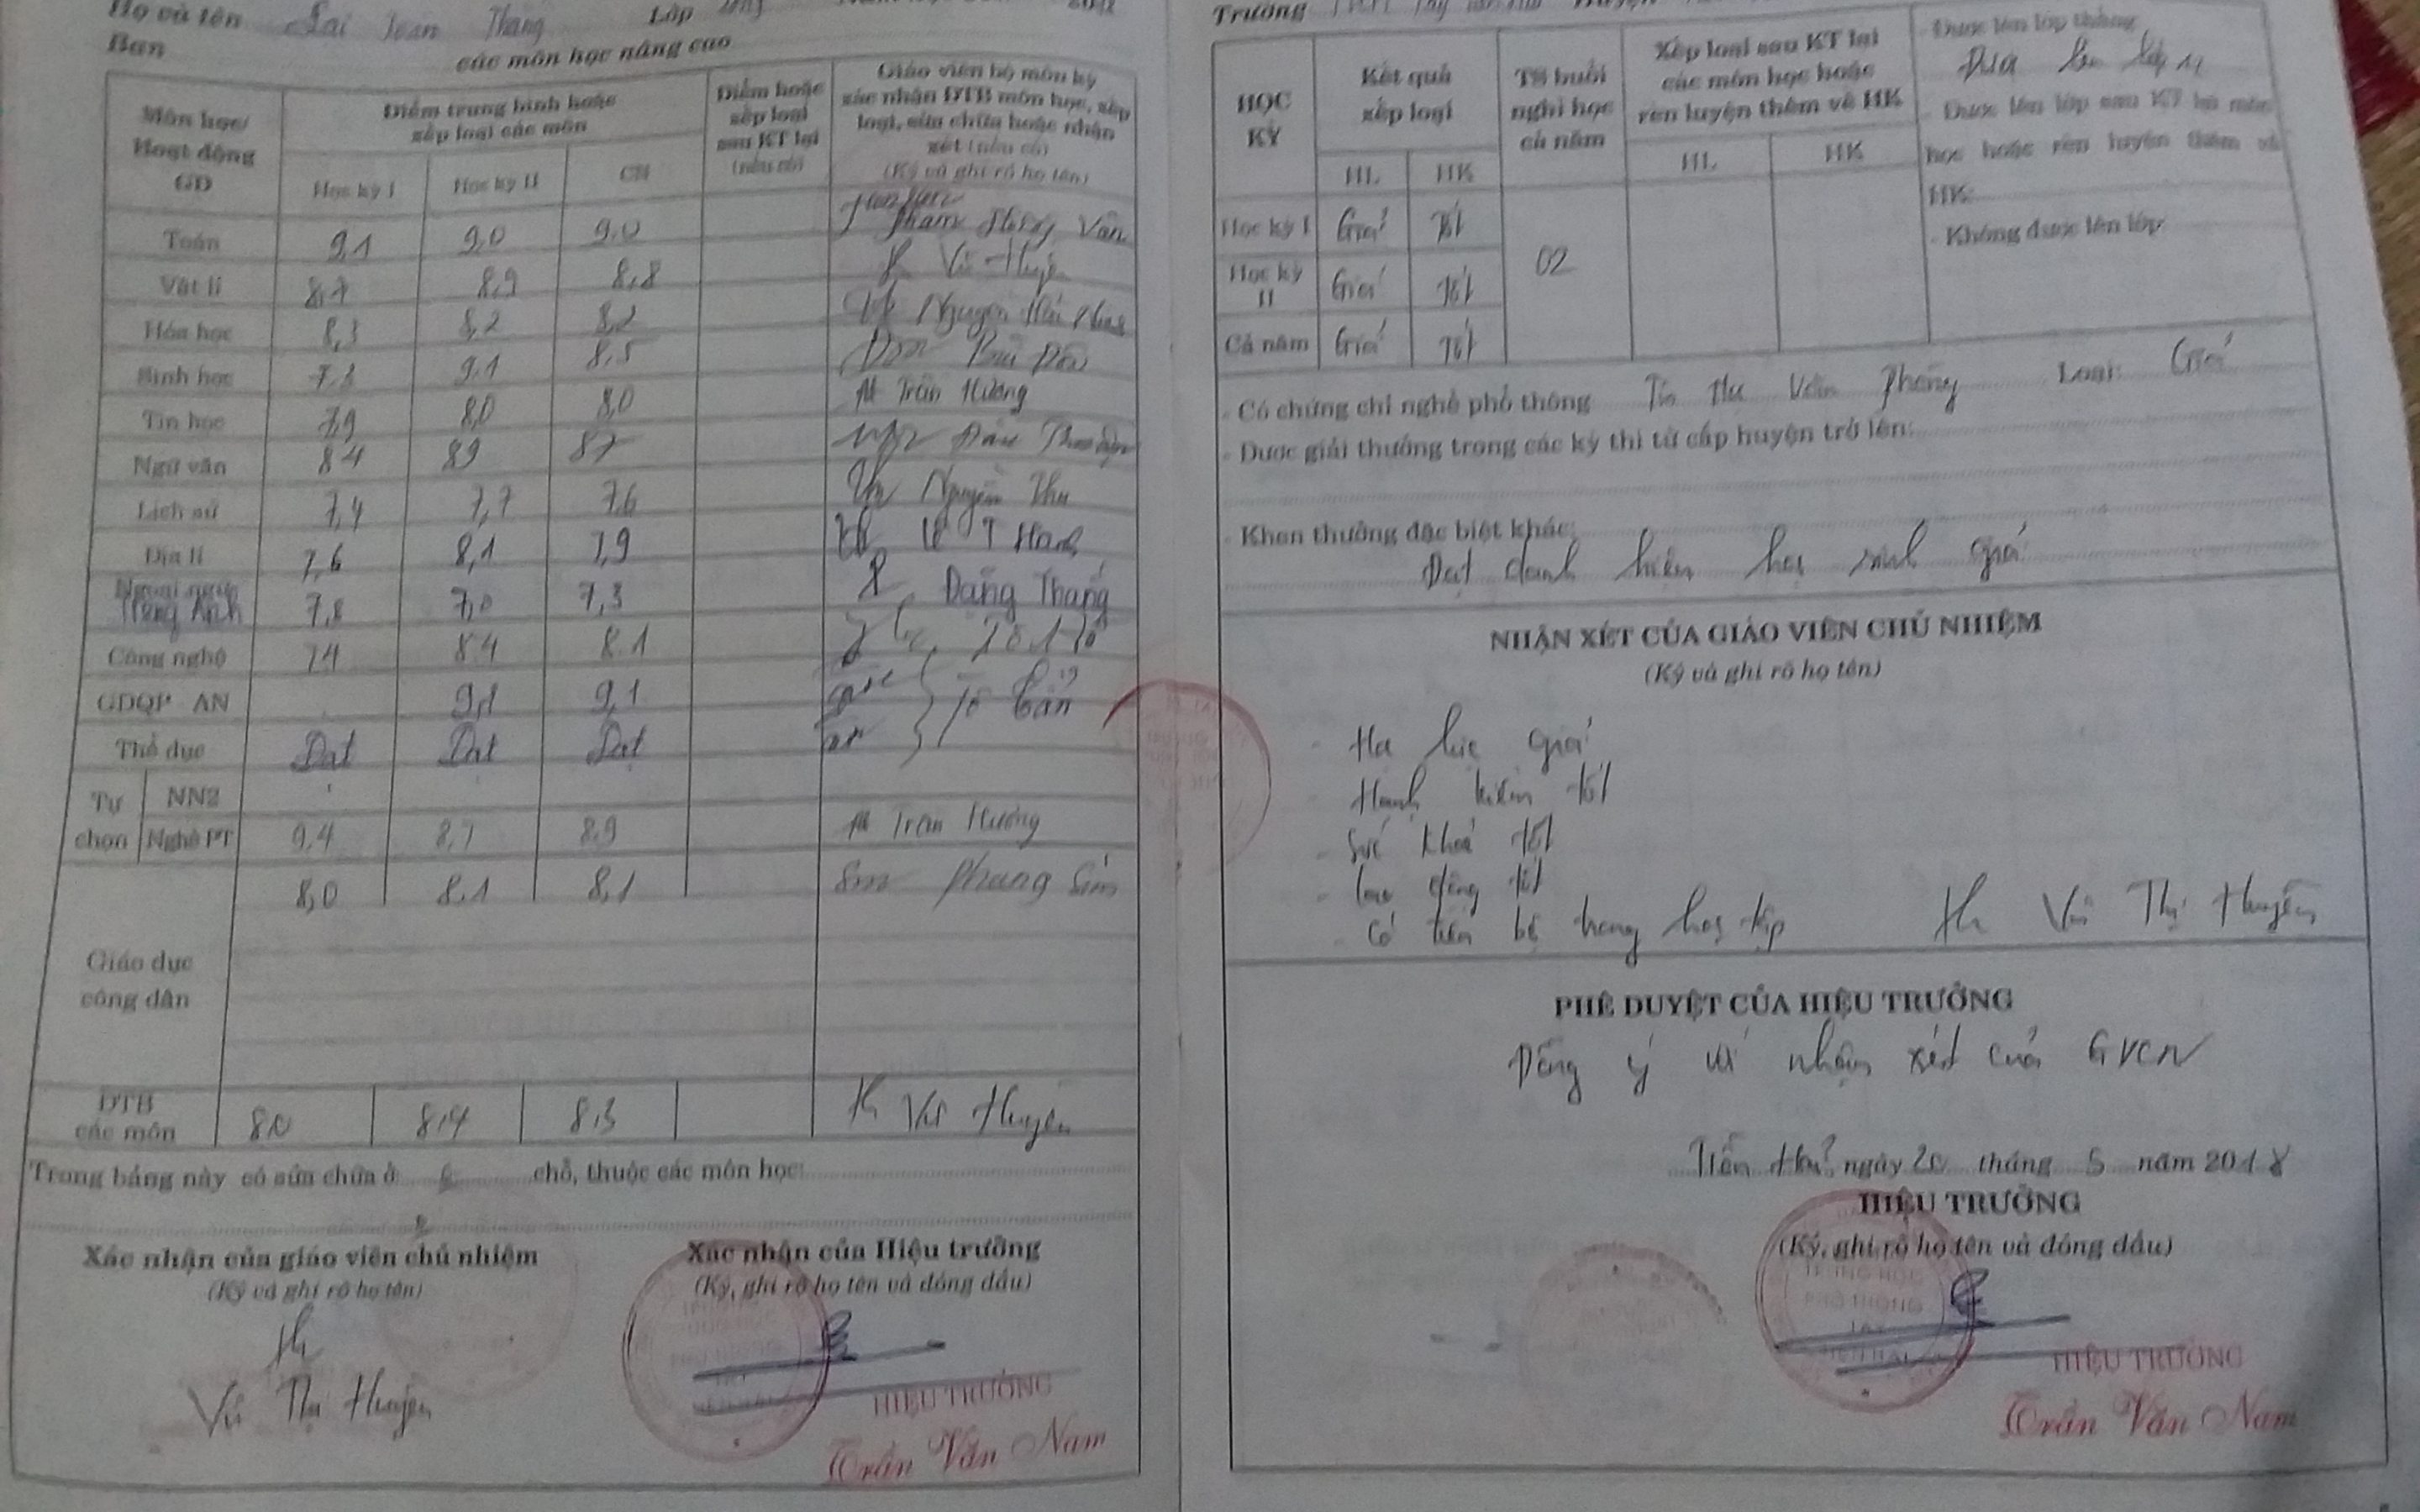 Họ và tên Lại Toàn Thắng Lớp
Ban các môn học nâng cao
Môn học/ Hoạt động GD
Điểm trung bình hoặc xếp loại các môn
Học kỳ I Học kỳ II CN
Điểm hoặc xếp loại sau KT lại (nếu có)
Giáo viên bộ môn ký xác nhận ĐTB môn học, xếp loại, sửa chữa hoặc nhận xét (nếu có)
(Ký và ghi rõ họ tên)
Toán 9,1 9,0 9,0 Phạm Hồng Vân
Vật lí 8,7 8,9 8,8 Vũ Huyên
Hóa học 8,3 8,2 8,2 Nguyễn
Sinh học 7,3 9,1 8,5
Tin học 7,9 8,0 8,0 Trần Hương
Ngữ văn 8,4 8,9 8,7
Lịch sử 7,4 7,7 7,6 Nguyễn Thu
Địa lí 7,6 8,1 7,9 Lê T Hạnh
Ngoại ngữ: Tiếng Anh 7,8 7,0 7,3 Đặng Thắng
Công nghệ 7,4 8,4 8,1
GDQP AN 9,1 9,1
Thể dục Đạt Đạt Đạt
Tự chọn NN2
Nghề PT 9,4 8,7 8,9 Trần Hương
Giáo dục công dân 8,0 8,1 8,1 Phung Sim
ĐTB các môn 8,0 8,4 8,3 Vũ Huyên
Trong bảng này có sửa chữa ở chỗ, thuộc các môn học:
Xác nhận của giáo viên chủ nhiệm
(Ký và ghi rõ họ tên)
Vũ Thị Huyên
Xác nhận của Hiệu trưởng
(Ký, ghi rõ họ tên và đóng dấu)
HIỆU TRƯỞNG
Trần Văn Nam
Trường
HỌC KỲ
Kết quả xếp loại
HL HK
TS buổi nghỉ học cả năm
Xếp loại sau KT lại các môn học hoặc rèn luyện thêm về HK
HL HK
- Được lên lớp thẳng
Được lên lớp 11
- Được lên lớp sau KT lại môn học hoặc rèn luyện thêm về HK:
- Không được lên lớp:
Học kỳ I Giỏi Tốt
02
Học kỳ II Giỏi Tốt
Cả năm Giỏi Tốt
- Có chứng chỉ nghề phổ thông Tin học Văn phòng Loại: Giỏi
- Được giải thưởng trong các kỳ thi từ cấp huyện trở lên:
- Khen thưởng đặc biệt khác:
Đạt danh hiệu học sinh giỏi
NHẬN XÉT CỦA GIÁO VIÊN CHỦ NHIỆM
(Ký và ghi rõ họ tên)
- Học lực giỏi
- Hạnh kiểm tốt
- Sức khoẻ tốt
- Lao động tốt
- Có tiến bộ trong học tập
Vũ Thị Huyên
PHÊ DUYỆT CỦA HIỆU TRƯỞNG
Đồng ý với nhận xét của GVCN
Tiền Hải, ngày 20 tháng 5 năm 2018
HIỆU TRƯỞNG
(Ký, ghi rõ họ tên và đóng dấu)
HIỆU TRƯỞNG
Trần Văn Nam